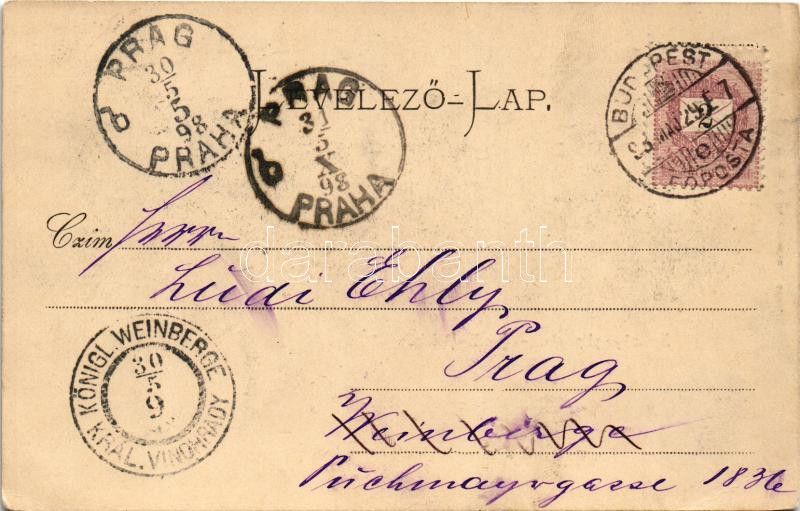 PRAG
30
5
5
98
PRAHA
PRAG
31
5
X
98
PRAHA
LEVELEZŐ-LAP.
BUDAPEST
FŐPOSTA
2
Czim
Herrn
Ludi Ehly
Prag
Weinberge
Puchmayrgasse 1836
KÖNIGL. WEINBERGE
30
5
9
KRÁL. VINOHRADY
darabanth.com